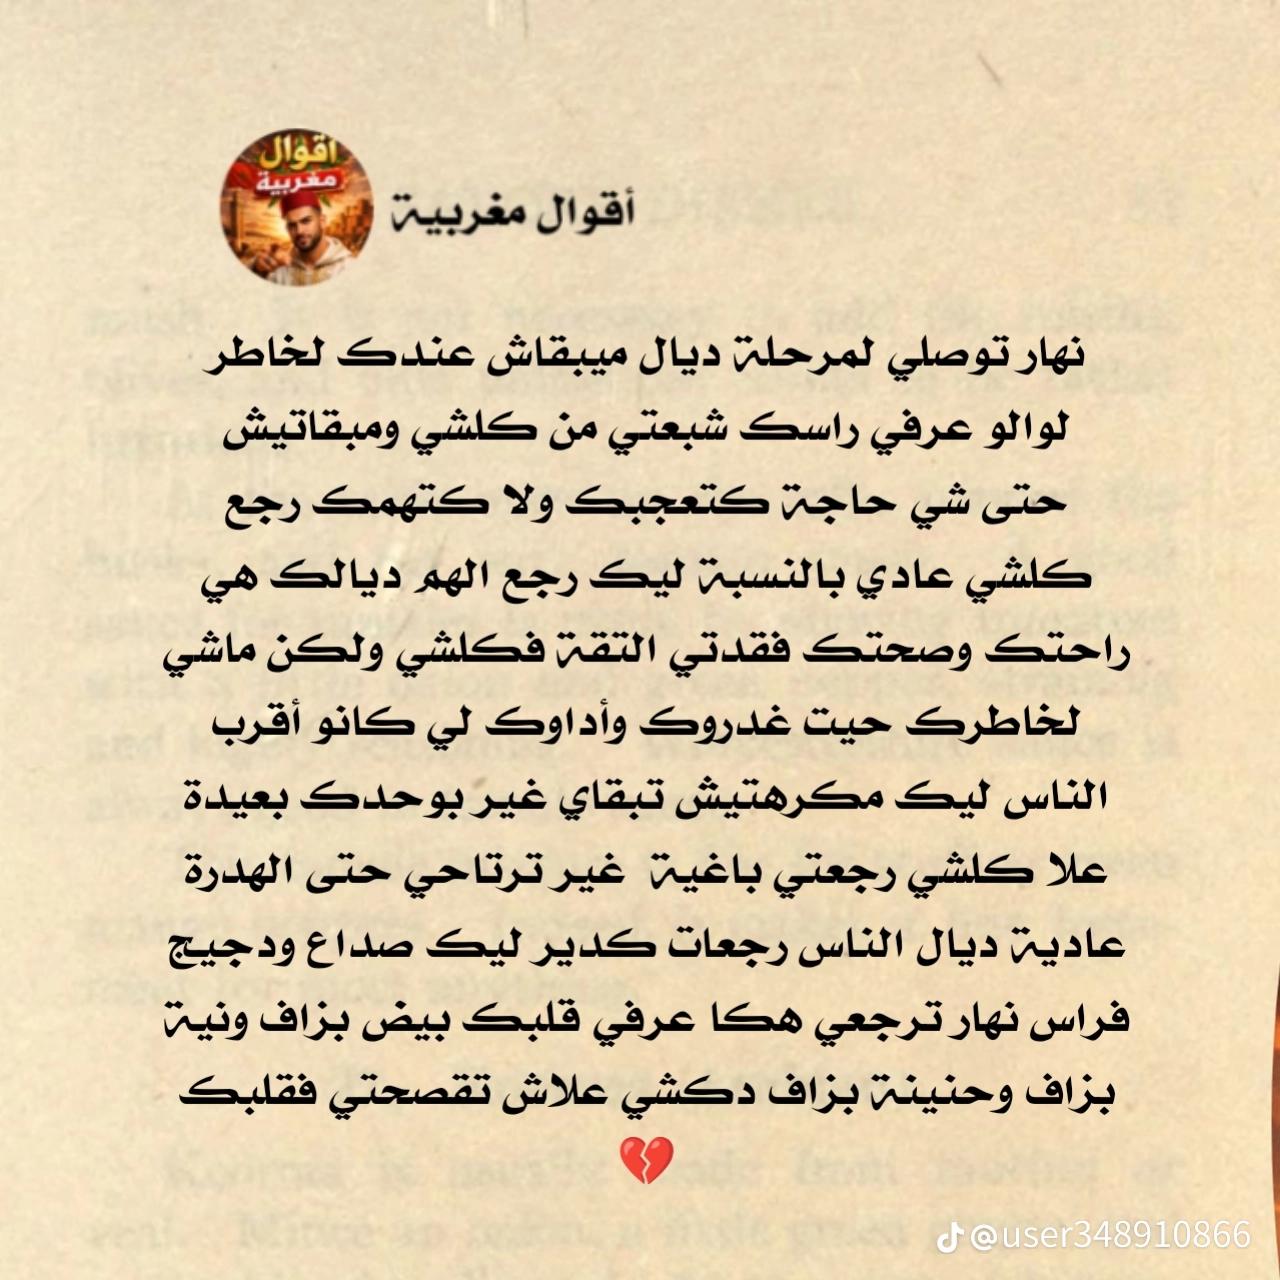 أقوال
مغربية
أقوال مغربية
نهار توصلي لمرحلة ديال ميبقاش عندك لخاطر
لوالو عرفي راسك شبعتي من كلشي ومبقاتيش
حتى شي حاجة كتعجبك ولا كتهمك رجع
كلشي عادي بالنسبة ليك رجع الهم ديالك هي
راحتك وصحتك فقدتي التقة فكلشي ولكن ماشي
لخاطرك حيت غدروك وأداوك لي كانو أقرب
الناس ليك مكرهتيش تبقاي غير بوحدك بعيدة
علا كلشي رجعتي باغية غير ترتاحي حتى الهدرة
عادية ديال الناس رجعات كدير ليك صداع ودجيج
فراس نهار ترجعي هكا عرفي قلبك بيض بزاف ونية
بزاف وحنينة بزاف دكشي علاش تقصحتي فقلبك
💔
@user348910866